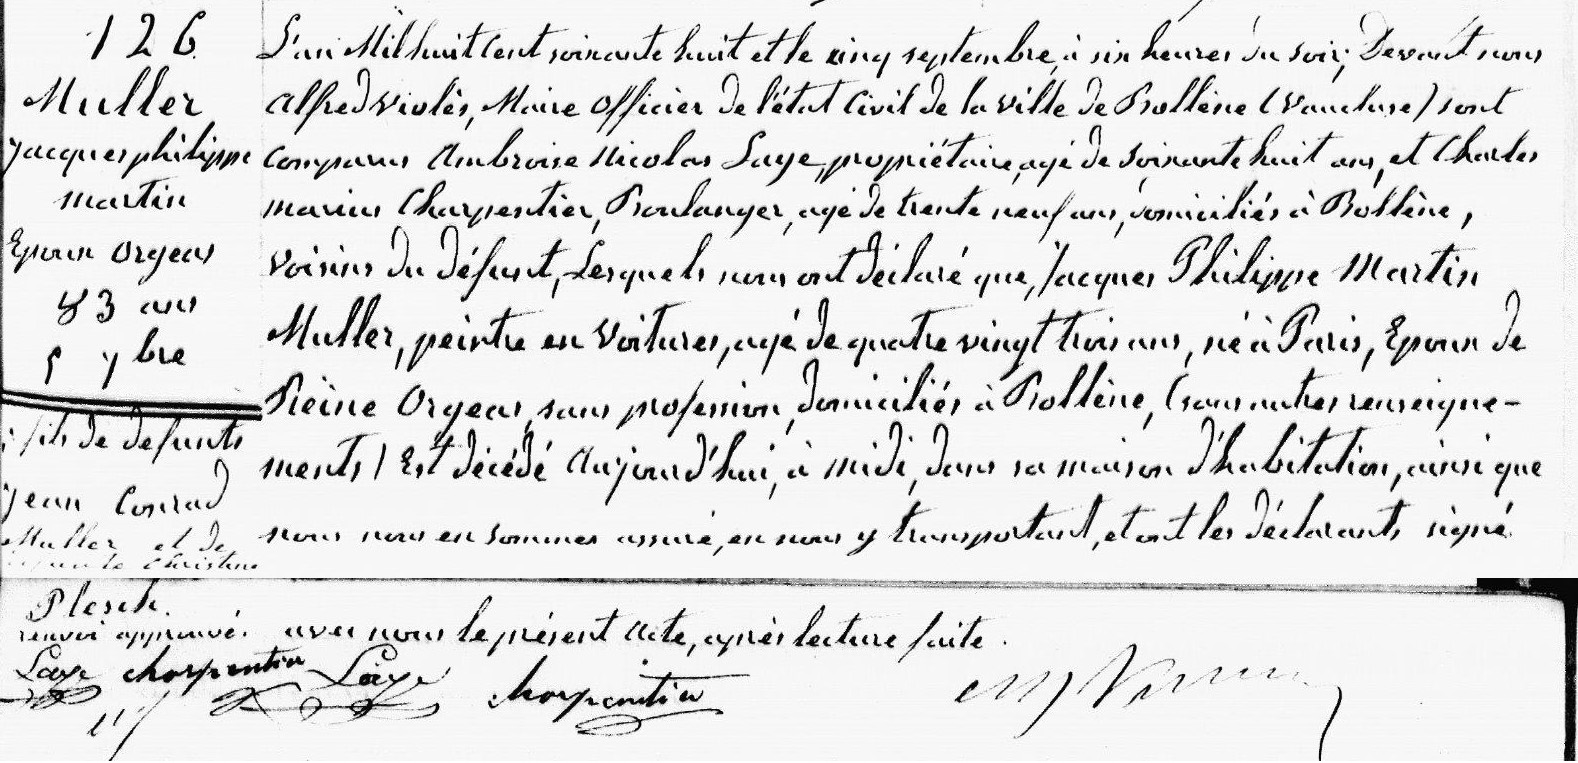 126
Muller
Jacques philippe
martin
Epoux Orgeas
83 ans
5 7bre
fils de defunts
jean Conrad
Muller et de
Christine
Plesch.
renvoi approuvé.
Laye charpentier
L'an Mil huit Cent soixante huit et le cinq septembre, à six heures du soir; Devant nous
Alfred Violès, Maire Officier de l'état Civil de la ville de Bollène (Vaucluse) sont
Comparus Ambroise Nicolas Laye, propriétaire, agé de soixante huit ans, et Charles
marius Charpentier, Boulanger, agé de trente neuf ans, domiciliés à Bollène,
voisins du défunt, Lesquels nous ont déclaré que, Jacques Philippe Martin
Muller, peintre en Voitures, agé de quatre vingt trois ans, né à Paris, Epoux de
Reine Orgeas, sans profession, domiciliés à Bollène, (sans autres renseigne-
ments) Est décédé Aujourd'hui, à midi, dans sa maison d'habitation, ainsi que
nous nous en sommes assuré, en nous y transportant, et ont les déclarants signé
avec nous le présent Acte, après lecture faite.
Laye charpentier